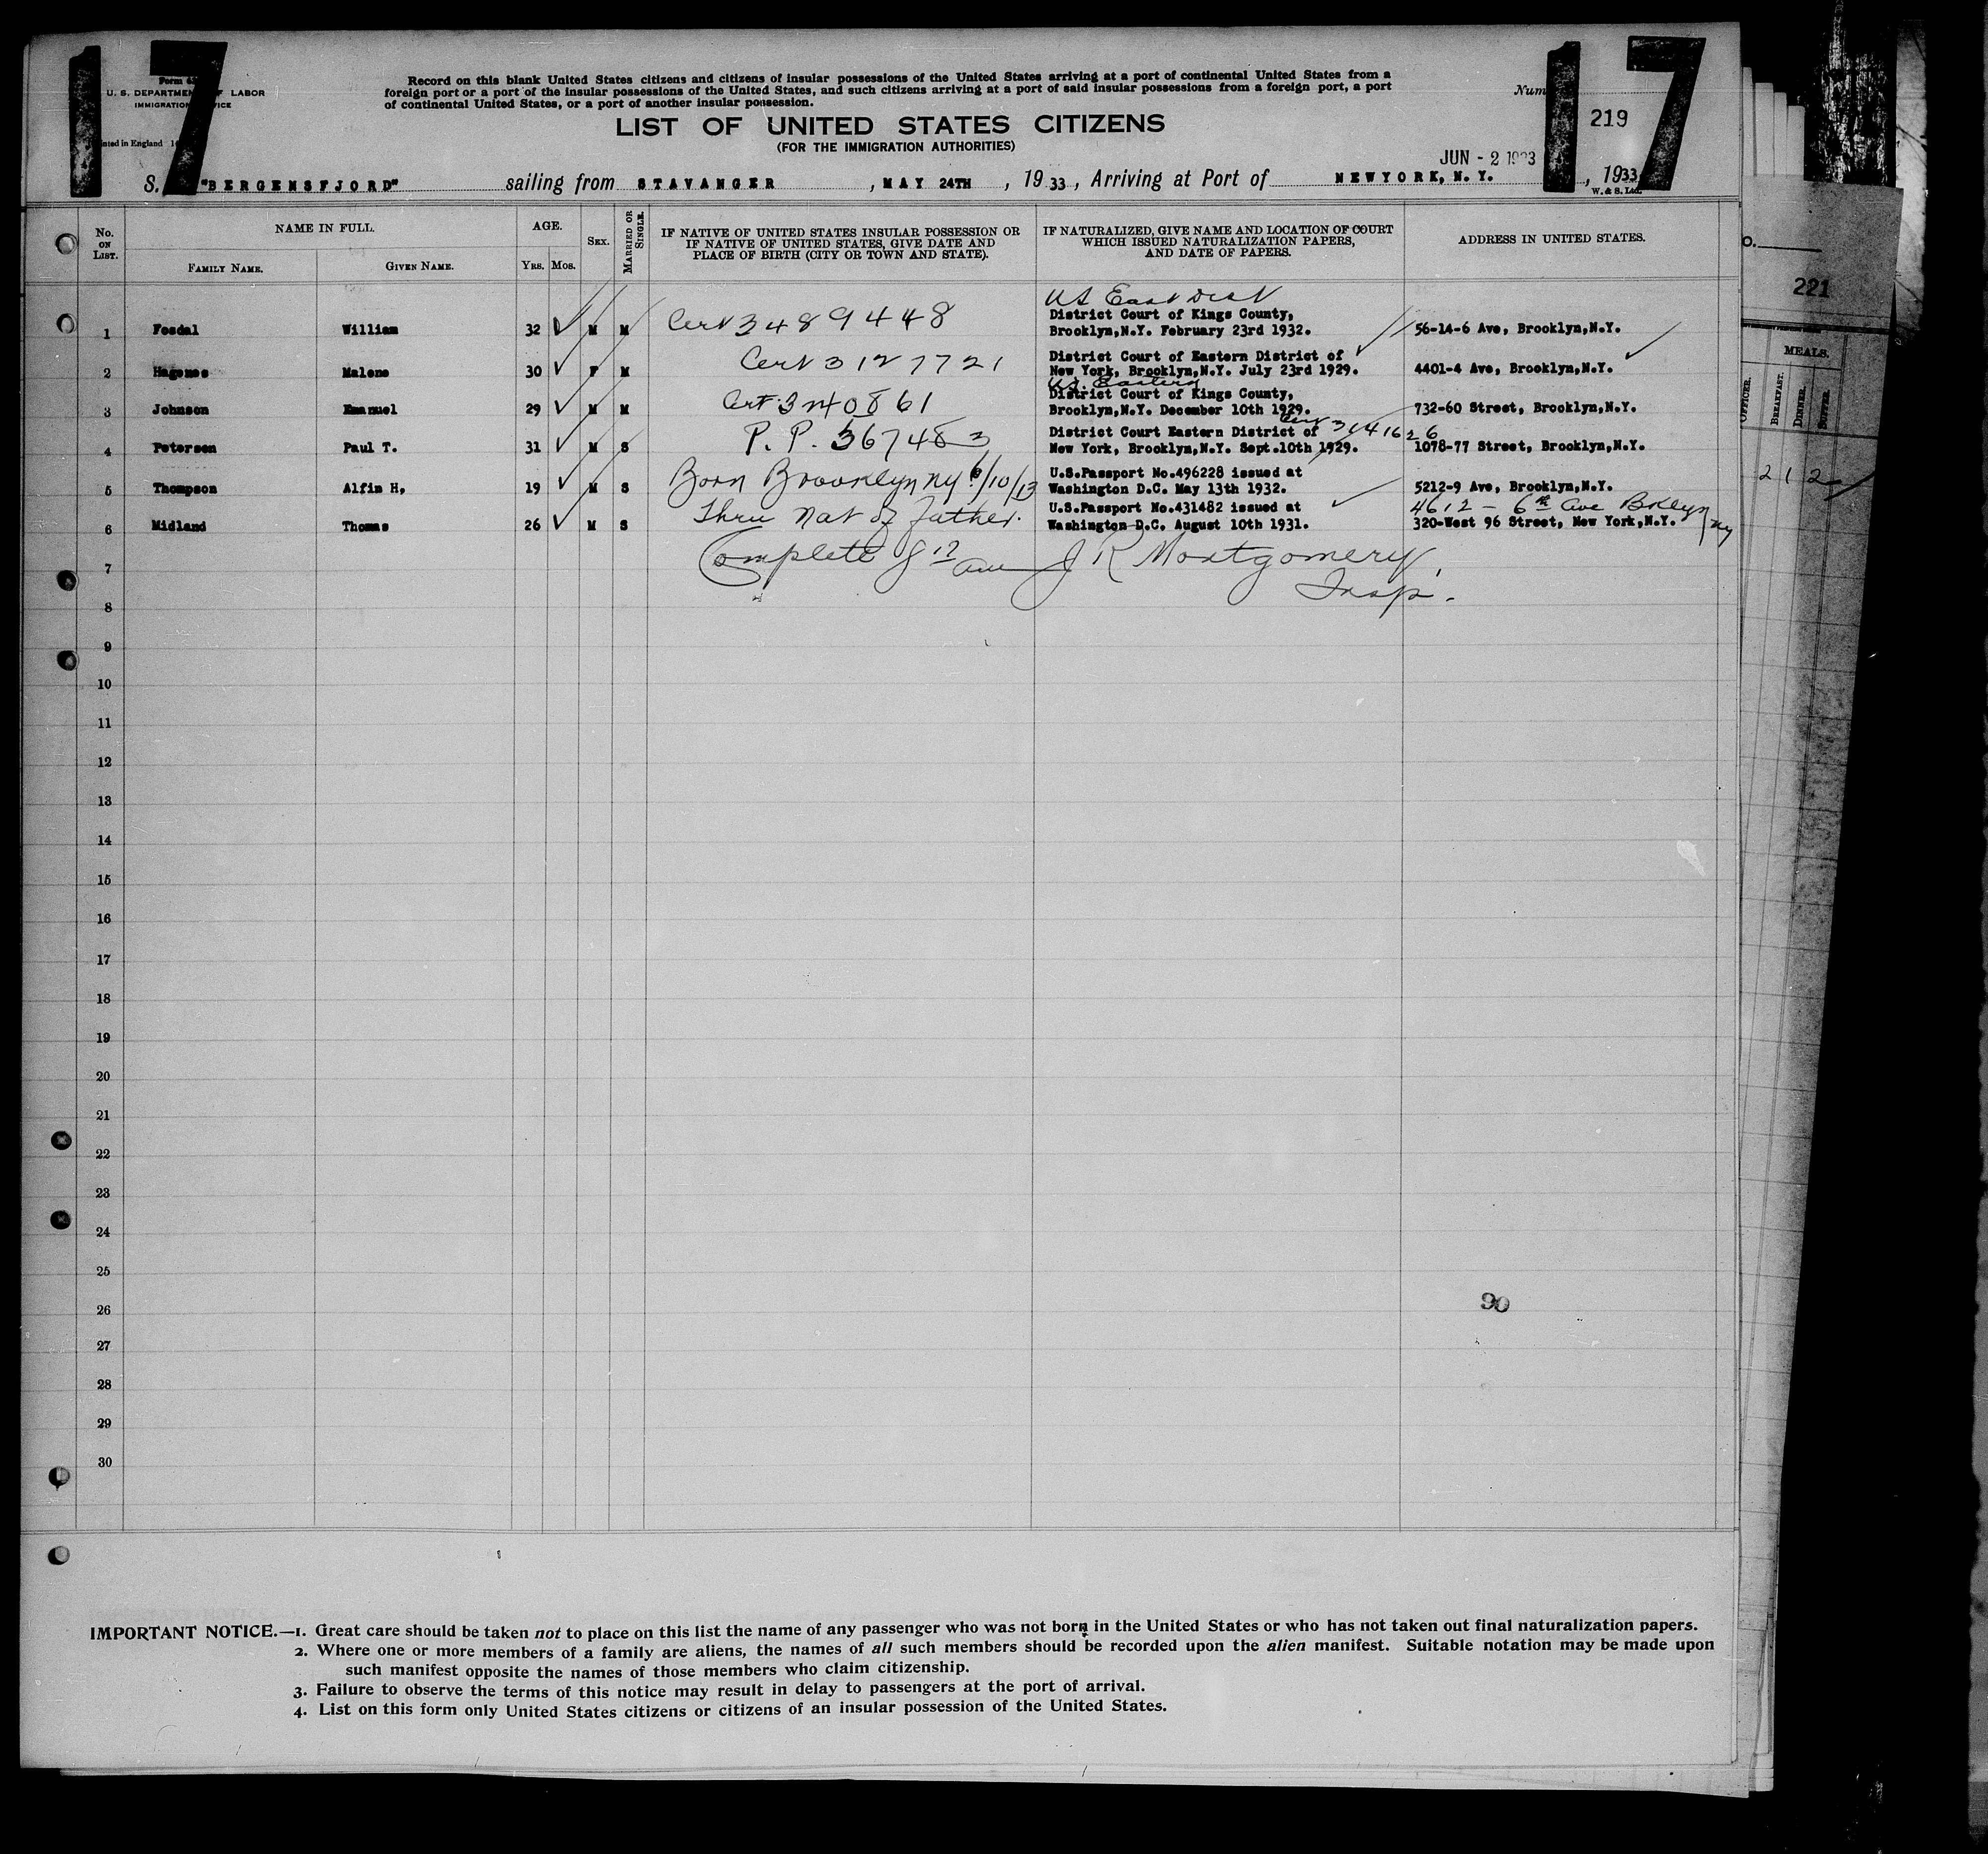 17
17
Form
U. S. DEPARTMENT OF LABOR
IMMIGRATION SERVICE
Printed in England
Record on this blank United States citizens and citizens of insular possessions of the United States arriving at a port of continental United States from a
foreign port or a port of the insular possessions of the United States, and such citizens arriving at a port of said insular possessions from a foreign port, a port
of continental United States, or a port of another insular possession.
Num
219
LIST OF UNITED STATES CITIZENS
(FOR THE IMMIGRATION AUTHORITIES)
JUN - 2 1933
S. "BERGENSFJORD" sailing from STAVANGER, MAY 24TH, 1933, Arriving at Port of NEWYORK, N.Y., 1933
W. & S. Ltd.
No. ON LIST. NAME IN FULL. FAMILY NAME. GIVEN NAME. AGE. YRS. MOS. SEX. MARRIED OR SINGLE. IF NATIVE OF UNITED STATES INSULAR POSSESSION OR IF NATIVE OF UNITED STATES, GIVE DATE AND PLACE OF BIRTH (CITY OR TOWN AND STATE). IF NATURALIZED, GIVE NAME AND LOCATION OF COURT WHICH ISSUED NATURALIZATION PAPERS, AND DATE OF PAPERS. ADDRESS IN UNITED STATES.
US East Dist
District Court of Kings County,
1 Fosdal William 32 M M Cert 3489448 Brooklyn,N.Y. February 23rd 1932. 56-14-6 Ave, Brooklyn,N.Y.
District Court of Eastern District of
2 Hagenes Malene 30 F M Cert 3127721 New York, Brooklyn,N.Y. July 23rd 1929. 4401-4 Ave, Brooklyn,N.Y.
U.S. Eastern
District Court of Kings County,
3 Johnson Emanuel 29 M M Cert. Brooklyn,N.Y. December 10th 1929. 732-60 Street, Brooklyn,N.Y.
Cert 3141626
District Court Eastern District of
4 Petersen Paul T. 31 M S P. P. 367483 New York, Brooklyn,N.Y. Sept.10th 1929. 1078-77 Street, Brooklyn,N.Y.
U.S.Passport No.496228 issued at
5 Thompson Alfin H, 19 M S Born Brooklyn ny 6/10/13 Washington D.C. May 13th 1932. 5212-9 Ave, Brooklyn,N.Y.
U.S.Passport No.431482 issued at 4612 - 6th Ave Bklyn ny
6 Midland Thomas 26 M S Thru Nat of father. Washington D.C. August 10th 1931. 320-West 96 Street, New York,N.Y.
7 Complete J R Montgomery
Insp.
8
9
10
11
12
13
14
15
16
17
18
19
20
21
22
23
24
25
26
90
27
28
29
30
IMPORTANT NOTICE.—1. Great care should be taken not to place on this list the name of any passenger who was not born in the United States or who has not taken out final naturalization papers.
2. Where one or more members of a family are aliens, the names of all such members should be recorded upon the alien manifest. Suitable notation may be made upon
such manifest opposite the names of those members who claim citizenship.
3. Failure to observe the terms of this notice may result in delay to passengers at the port of arrival.
4. List on this form only United States citizens or citizens of an insular possession of the United States.
221
MEALS.
OFFICER. BREAKFAST. DINNER. SUPPER.
2 1 2